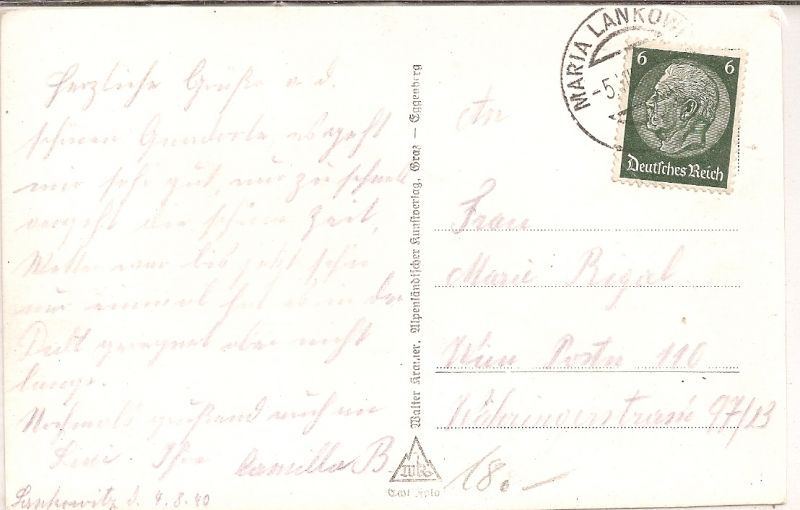 Herzliche Grüße a. d.
schönen Gundorte, es geht
mir sehr gut nur zu schnell
vergeht die schöne Zeit,
Wetter war bis jetzt schön
nur einmal hat es in der
geregnet aber nicht
lange.
Nochmals grüßend auch an
Ihre Camilla B.
Lankowitz d. 4.8.40
Walter Kramer, Alpenländischer Kunstverlag, Graz – Eggenberg
WK
Echt Foto
MARIA LANKOW
-5.
6 6
Deutsches Reich
An
Frau
Marie Rigal
Wien Postn 110
Währingerstrasse 97/13
180.–